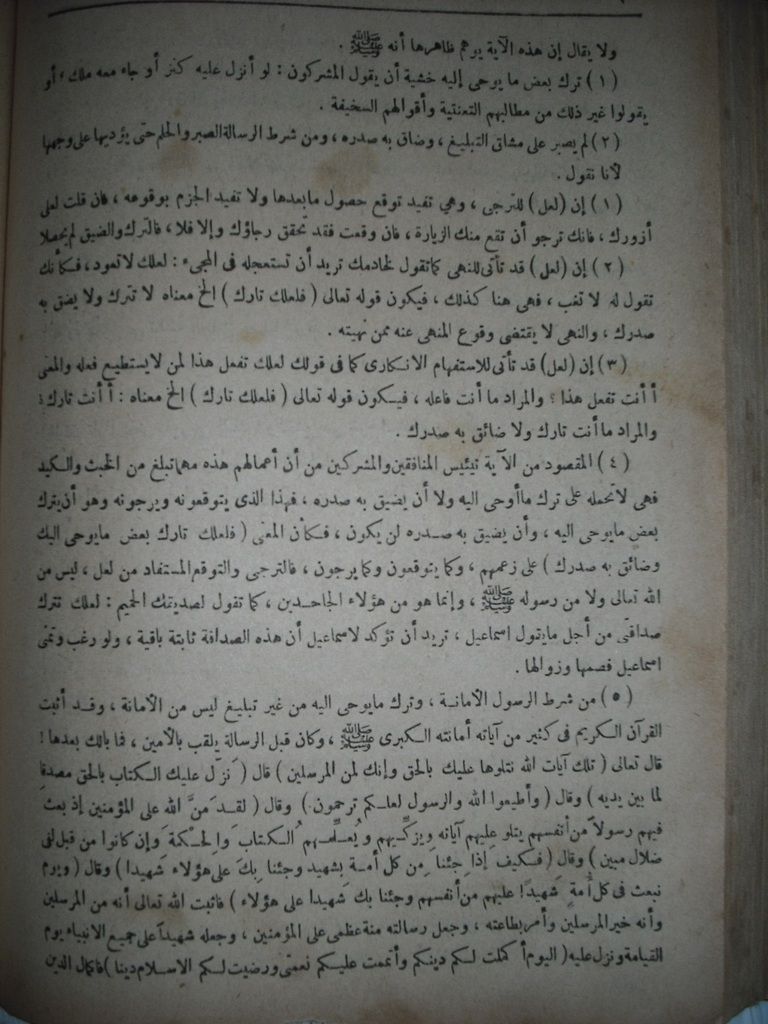 ولا يقال إن هذه الآية يوهم ظاهرها أنه ﷺ .
(١) ترك بعض ما يوحى إليه خشية أن يقول المشركون : لو أنزل عليه كنز أو جاء معه ملك ، أو
يقولوا غير ذلك من مطالبهم التعنتية وأقوالهم السخيفة .
(٢) لم يصبر على مشاق التبليغ ، وضاق به صدره ، ومن شرط الرسالة الصبر والحلم حتى يؤديها على وجهها
لأنا نقول .
(١) إن (لعل) للترجى ، وهي تفيد توقع حصول مابعدها ولا تفيد الجزم بوقوعه ، فان قلت لعلى
أزورك ، فانك ترجو أن تقع منك الزيارة ، فان وقعت فقد تحقق رجاؤك وإلا فلا ، فالترك والضيق لم يحصلا
(٢) إن (لعل) قد تأتى للنهى كما تقول لخادمك تريد أن تستعجله فى المجىء : لعلك لا تعود ، فكأنك
تقول له لا تغب ، فهى هنا كذلك ، فيكون قوله تعالى ( فلعلك تارك ) الخ معناه لا تترك ولا يضق به
صدرك ، والنهى لا يقتضى وقوع المنهى عنه ممن نهيته .
(٣) إن (لعل) قد تأتى للاستفهام الانكارى كما فى قولك لعلك تفعل هذا لمن لا يستطيع فعله والمعنى
أأنت تفعل هذا ؟ والمراد ما أنت فاعله ، فيكون قوله تعالى ( فلعلك تارك ) الخ معناه : أأنت تارك ؟
والمراد ما أنت تارك ولا ضائق به صدرك .
(٤) المقصود من الآية تيئيس المنافقين والمشركين من أن أعمالهم هذه مهما تبلغ من الخبث والكيد
فهى لا تحمله على ترك ما أوحى اليه ولا أن يضيق به صدره ، فهذا الذى يتوقعونه ويرجونه وهو أن يترك
بعض مايوحى اليه ، وأن يضيق به صدره لن يكون ، فكأن المعنى ( فلعلك تارك بعض مايوحى اليك
وضائق به صدرك ) على زعمهم ، وكما يتوقعون وكما يرجون ، فالترجى والتوقع المستفاد من لعل ، ليس من
الله تعالى ولا من رسوله ﷺ ، وإنما هو من هؤلاء الجاحدين ، كما تقول لصديقك الحميم : لعلك تترك
صداقتى من أجل مايقول اسماعيل ، تريد أن تؤكد لاسماعيل أن هذه الصداقة ثابتة باقية ، ولو رغب وتمنى
اسماعيل فصمها وزوالها .
(٥) من شرط الرسول الأمانة ، وترك مايوحى اليه من غير تبليغ ليس من الأمانة ، وقد أثبت
القرآن الكريم فى كثير من آياته أمانته الكبرى ﷺ ، وكان قبل الرسالة يلقب بالأمين ، فما بالك بعدها !
قال تعالى ( تلك آيات الله نتلوها عليك بالحق وإنك لمن المرسلين ) قال ( نزّل عليك الكتاب بالحق مصدقا
لما بين يديه ) وقال ( وأطيعوا الله والرسول لعلكم ترحمون ) وقال ( لقد منّ الله على المؤمنين إذ بعث
فيهم رسولاً من أنفسهم يتلو عليهم آياته ويزكيهم ويُعلمهم الكتاب والحكمة وإن كانوا من قبل لفى
ضلال مبين ) وقال ( فكيف إذا جئنا من كل أمة بشهيد وجئنا بك على هؤلاء شهيدا ) وقال ( ويوم
نبعث فى كل أمة شهيدًا عليهم من أنفسهم وجئنا بك شهيدا على هؤلاء ) فاثبت الله تعالى أنه من المرسلين
وأنه خير المرسلين وأمر بطاعته ، وجعل رسالته منة عظمى على المؤمنين ، وجعله شهيداً على جميع الانبياء يوم
القيامة ونزل عليه ( اليوم أكملت لكم دينكم وأتممت عليكم نعمتى ورضيت لكم الإسلام دينا ) فاكمال الدين